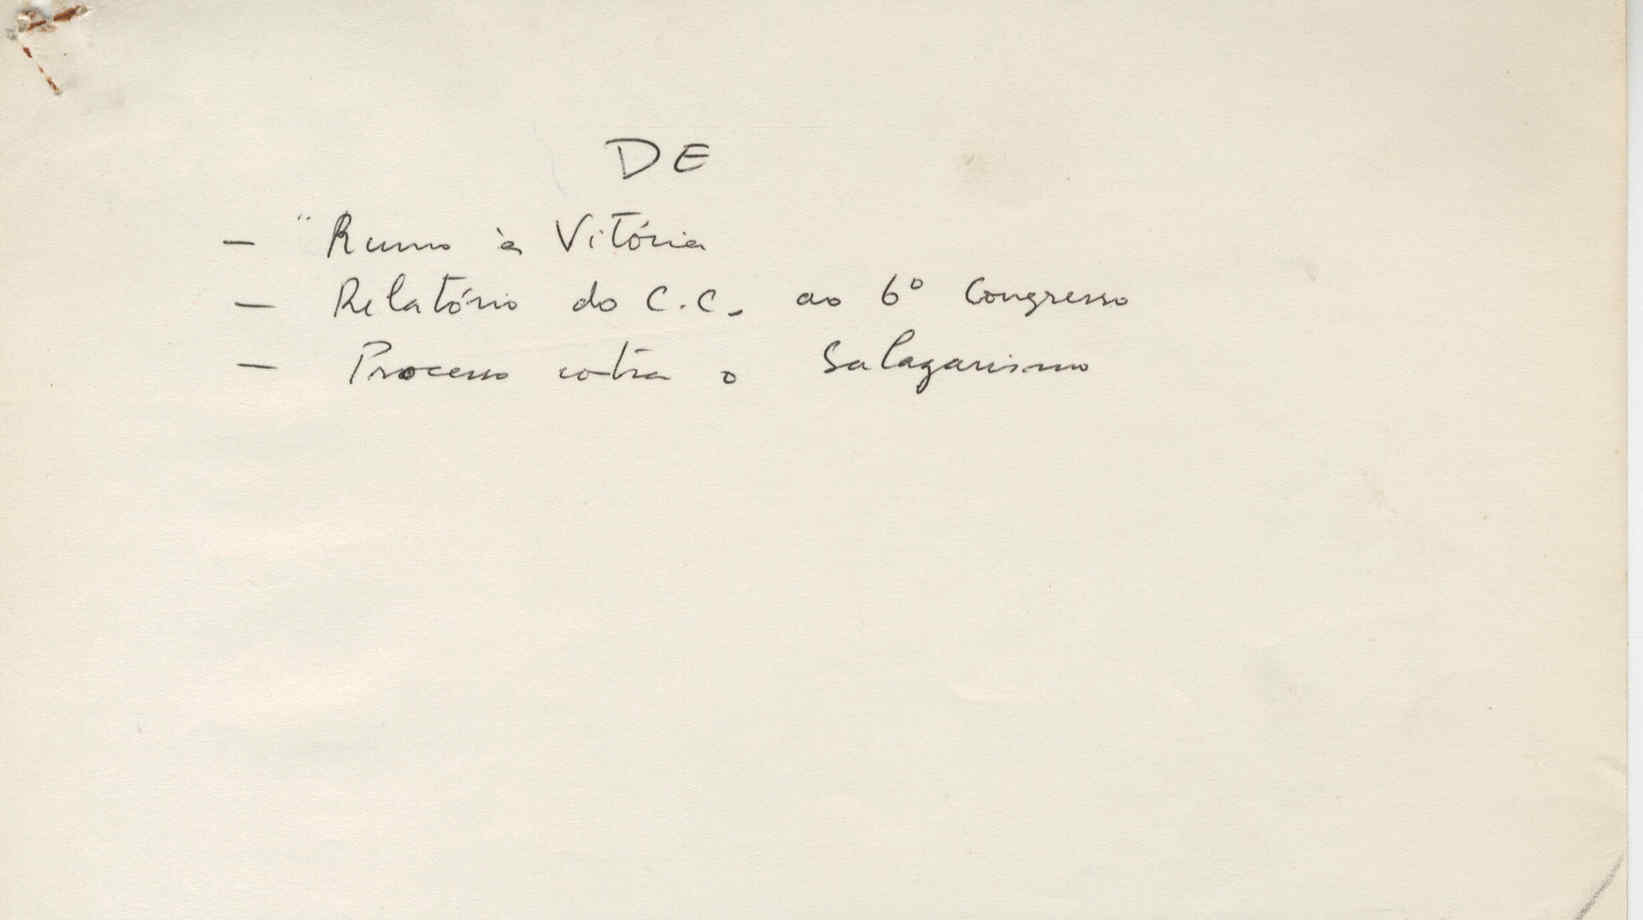 DE
– "Rumo à Vitória
– Relatório do C.C. ao 6º Congresso
– Processo contra o Salazarismo